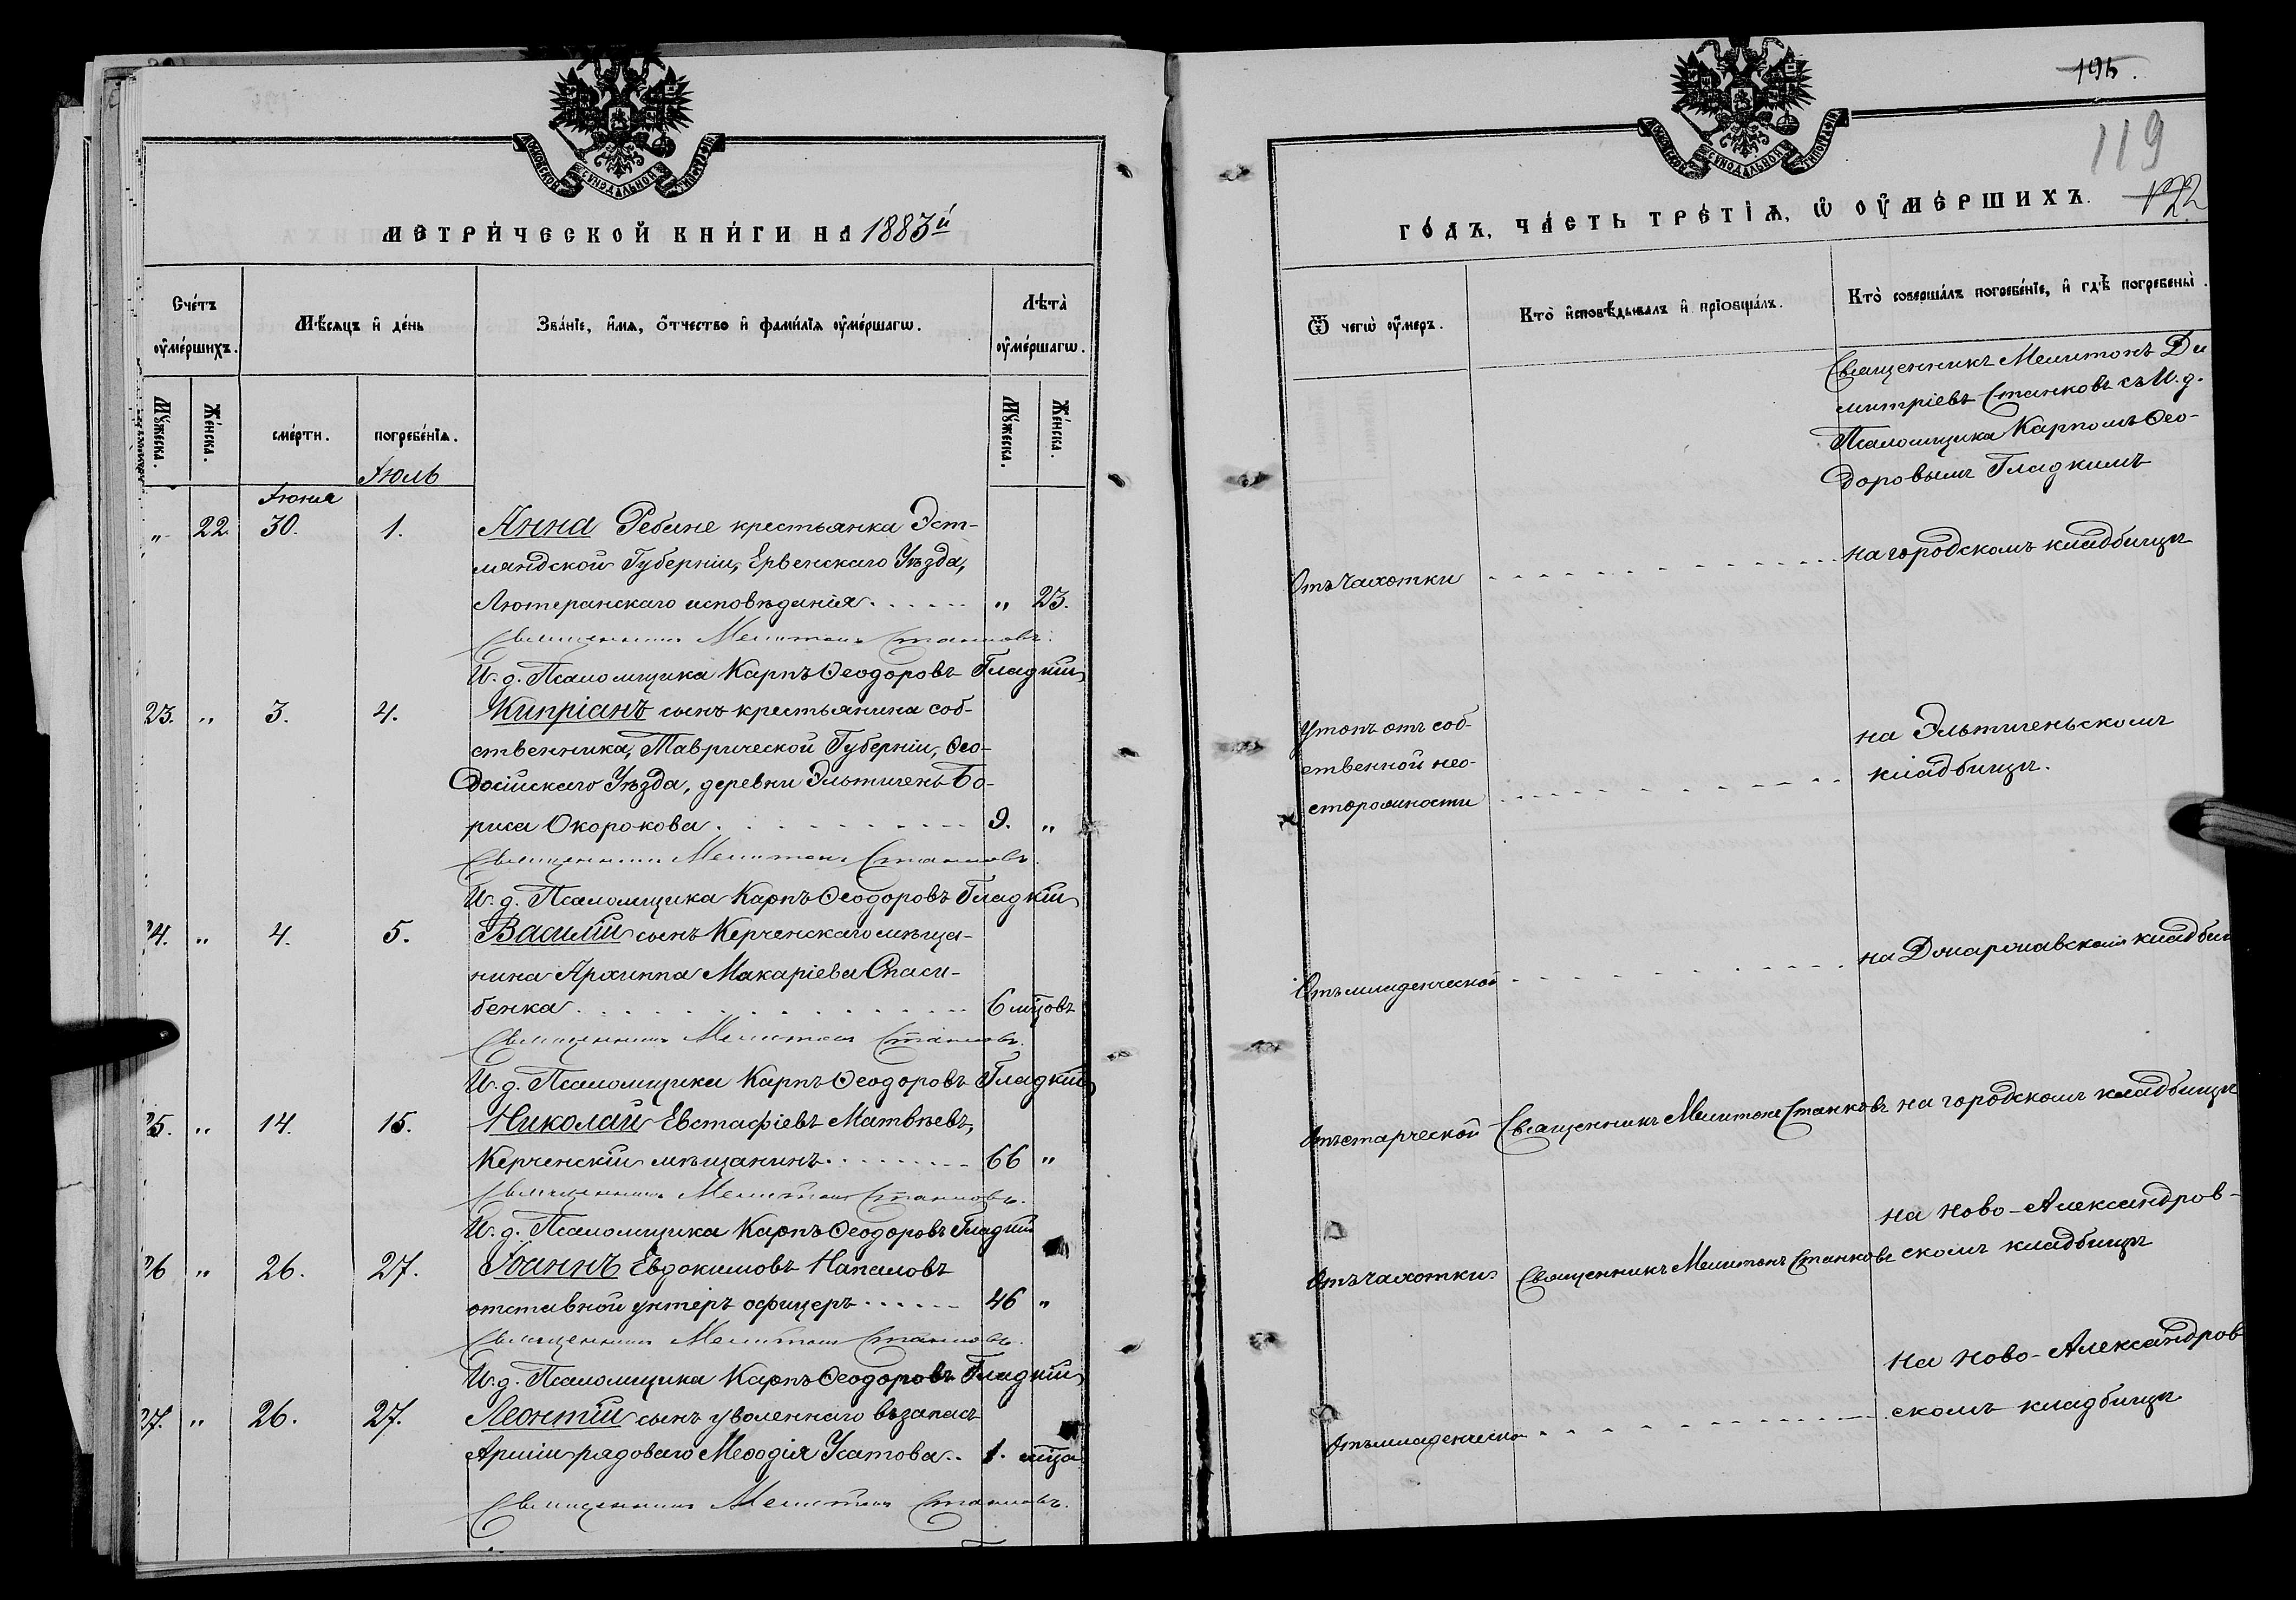 МОСКОВСКОЙ СѴНОДАЛЬНОЙ ТИПОГРАФІИ
МЕТРИ́ЧЕСКОЙ КНИ́ГИ НА 1883й
Сче́тъ ᲂу҆ме́ршихъ.
Мѣ́сяцъ и҆ де́нь
Зва́нїе, и҆́мѧ, ѻ҆́тчество и҆ фами́лїѧ ᲂу҆ме́ршагѡ.
Лѣ́та ᲂу҆ме́ршагѡ.
Мꙋ́жеска.
Же́нска.
сме́рти.
погребе́нїѧ.
Мꙋ́жеска.
Же́нска.
Іюль
Іюня
„ 22. 30. 1. Анна Ребане крестьянка Эст-
ляндской Губерніи, Ервенскаго Уѣзда,
Лютеранскаго исповѣданія „ 23.
Священникъ Мелитонъ Станковъ.
И. д. Псаломщика Карпъ Ѳеодоровъ Гладкій
23. „ 3. 4. Кипріанъ сынъ крестьянина соб-
ственника, Таврической Губерніи, Ѳео-
досійскаго Уѣзда, деревни Эльтигень Бо-
риса Окорокова. 9. „
Священникъ Мелитонъ Станковъ.
И. д. Псаломщика Карпъ Ѳеодоровъ Гладкій
24. „ 4. 5. Василій сынъ Керченскаго мѣща-
нина Архиппа Макаріева Спаси-
бенка 6 мѣцовъ
Священникъ Мелитонъ Станковъ.
И. д. Псаломщика Карпъ Ѳеодоровъ Гладкій
25. „ 14. 15. Николай Евстафіевъ Матвѣевъ,
Керченскій мѣщанинъ 66 „
Священникъ Мелитонъ Станковъ.
И. д. Псаломщика Карпъ Ѳеодоровъ Гладкій
26 „ 26. 27. Іоаннъ Евдокимовъ Напаловъ
отставной унтеръ офицеръ 46 „
Священникъ Мелитонъ Станковъ.
И. д. Псаломщика Карпъ Ѳеодоровъ Гладкій
27. „ 26. 27. Леонтій сынъ уволеннаго въ запасъ
Арміи рядоваго Меѳодія Усатова.. 1. мѣца
Священникъ Мелитонъ Станковъ.
195.
119
122
МОСКОВСКОЙ СѴНОДАЛЬНОЙ ТИПОГРАФІИ
ГО́ДЪ, ЧА́СТЬ ТРЕ́ТЇѦ, Ѡ҆ ОУ҆МЕ́РШИХЪ.
Ѿ чегѡ̀ ᲂу҆́меръ.
Кто̀ и҆сповѣ́дывалъ и҆ прїобща́лъ.
Кто̀ соверша́лъ погребе́нїе, и҆ гдѣ̀ погребены̀.
Священникъ Мелитонъ Ди
митріевъ Станковъ съ И. д.
Псаломщика Карпомъ Ѳео-
доровымъ Гладкимъ
Отъ чахотки на городскомъ кладбищѣ
Утопъ отъ соб-
ственной нео-
сторожности
на Эльтигеньскомъ
кладбищѣ.
Отъ младенческой на кладбищ
Отъ старческой Священникъ Мелитонъ Станковъ на городскомъ кладбищѣ
на Ново-Александров-
Отъ чахотки Священникъ Мелитонъ Станковъ скомъ кладбищѣ
На Ново-Александров
Отъ младенческой скомъ кладбищѣ